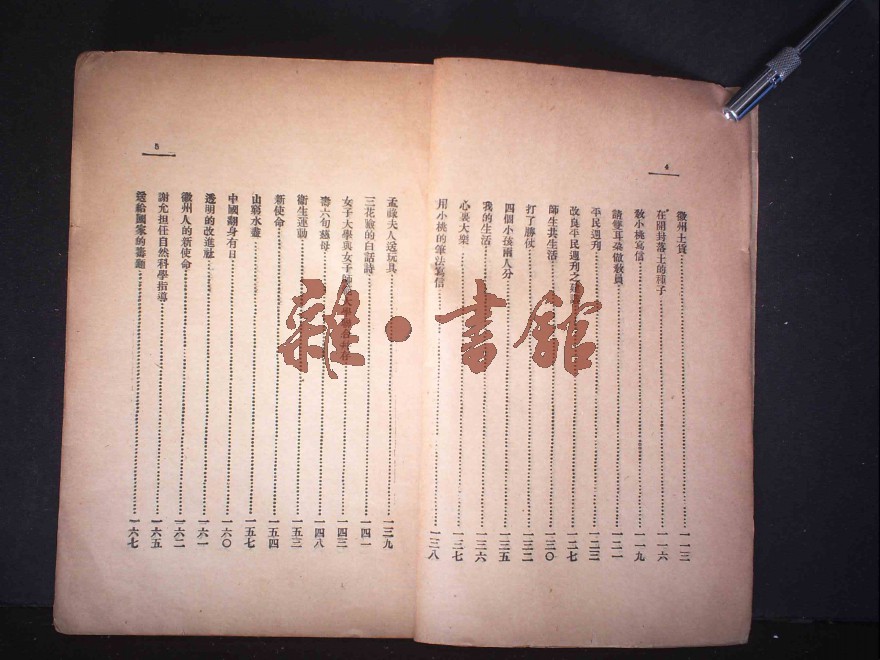 4
徽州土貨 一一三
在開封落土的種子 一一六
敎小桃寫信 一一九
請雙耳朶做敎員 一二一
平民週刊 一二三
改良平民週刊之 一二七
師生共生活 一三〇
打了勝仗 一三二
四個小孩兩人分 一三五
我的生活 一三六
心裏大樂 一三七
用小桃的筆法寫信 一三八
5
孟祿夫人送玩具 一三九
三花臉的白話詩 一四一
女子大學與女子師 一四三
壽六旬慈母 一四八
衞生運動 一五三
新使命 一五四
山窮水盡 一五七
中國翻身有日 一六〇
透明的改進社 一六一
徽州人的新使命 一六二
謝允担任自然科學指導 一六五
送給國家的壽麵 一六七
雜·書館